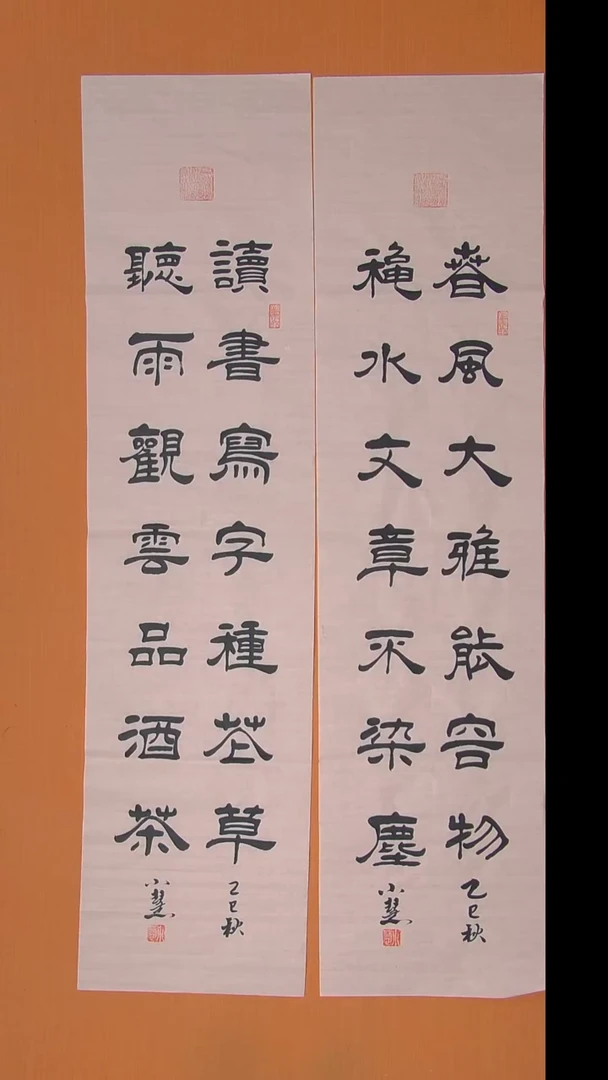 春風大雅能容物
乙巳秋
穐水文章不染塵
小慧
讀書寫字種花草
乙巳秋
聽雨觀雲品酒茶
小慧